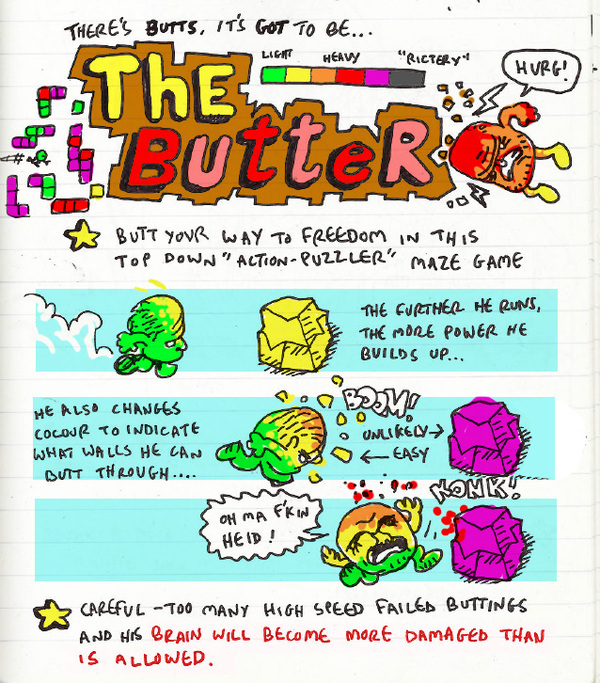 THERE'S BUTTS, IT'S GOT TO BE...
LIGHT HEAVY "RICTERY"
THE
BUTTER
HURG!
BUTT YOUR WAY TO FREEDOM IN THIS
TOP DOWN "ACTION-PUZZLER" MAZE GAME
THE FURTHER HE RUNS,
THE MORE POWER HE
BUILDS UP...
HE ALSO CHANGES
COLOUR TO INDICATE
WHAT WALLS HE CAN
BUTT THROUGH....
BOOM!
UNLIKELY→
←EASY
KONK!
OH MA F'KIN
HEID!
CAREFUL - TOO MANY HIGH SPEED FAILED BUTTINGS
AND HIS BRAIN WILL BECOME MORE DAMAGED THAN
IS ALLOWED.